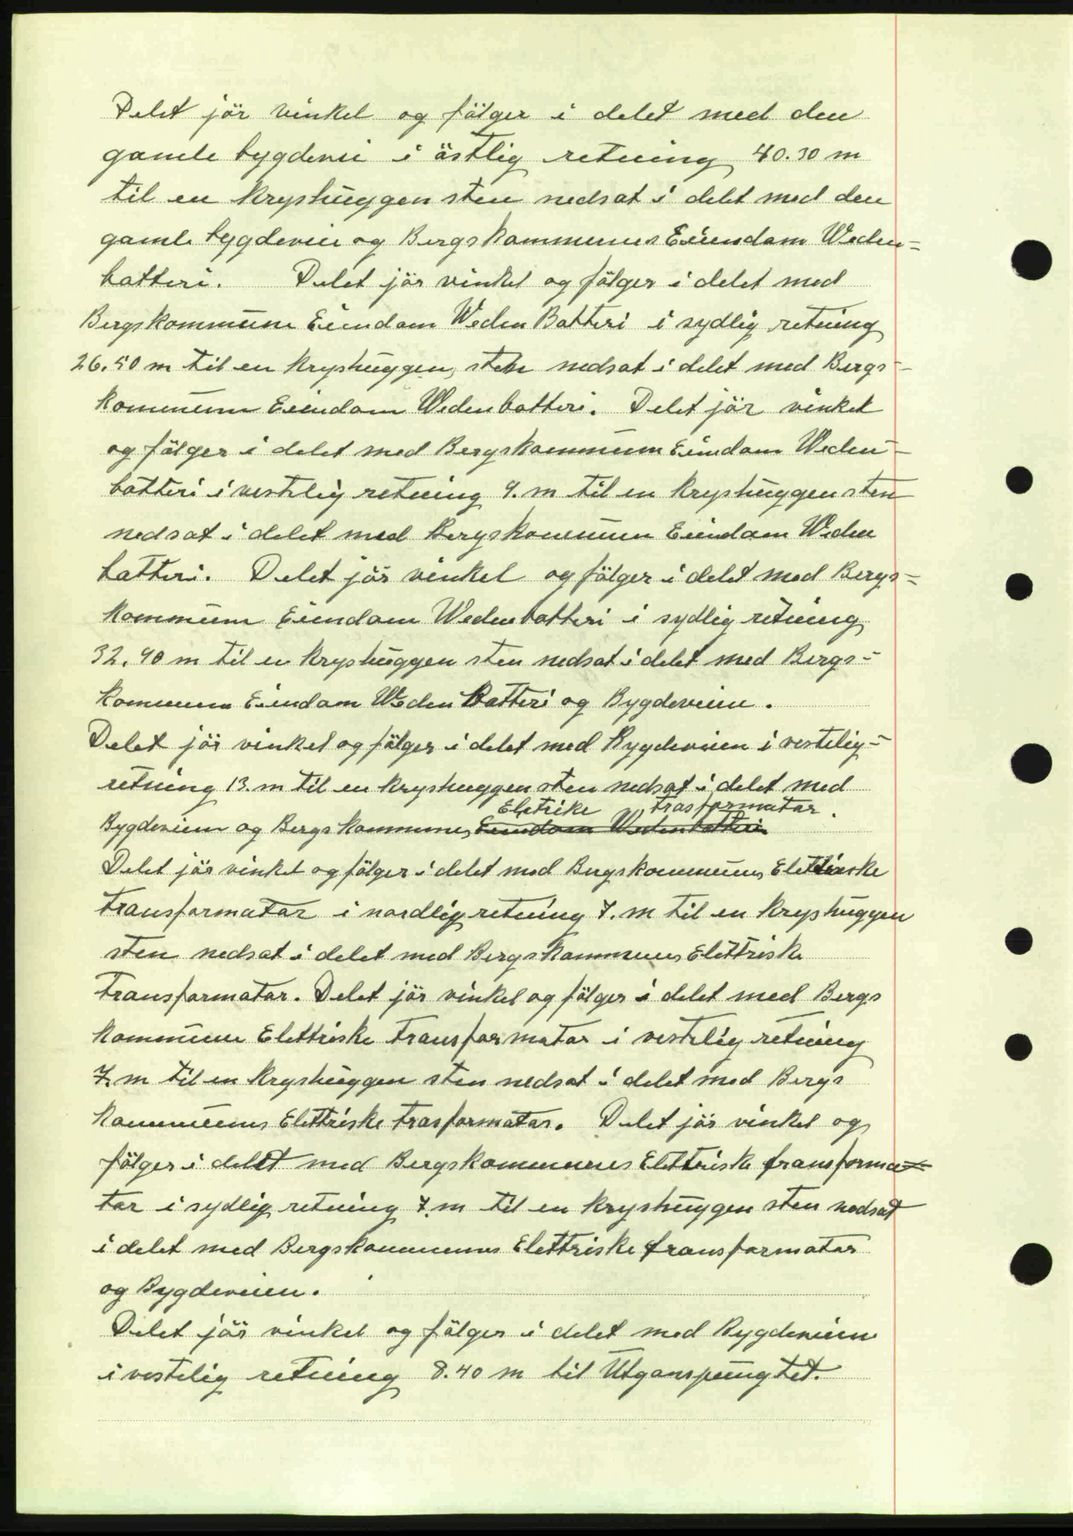 Delet jör vinkel og fölger i delet med den
gamle bygdevei i östlig retning 40.30 m
til en kryshuggen sten nedsat i delet med den
gamle bygdeveie og Bergskommunes Eiendam Weden=
batteri. Delet jör vinkel og fölger i delet med
Bergskommune Eiendam Weden Batteri i sydlig retning
26.50 m til en kryshuggen sten nedsat i delet med Bergs=
kommune Eiendam Wedenbatteri. Delet jör vinkel
og fölger i delet med Bergskommune Eiendam Weden=
batteri i vestelig retning 9. m til en kryshuggen sten
nedsat i delet med Bergskommune Eiendam Weden
batteri. Delet jör vinkel og fölger i delet med Bergs=
kommune Eiendam Wedenbatteri i sydlig retning
32.90 m til en kryshuggen sten nedsat i delet med Bergs=
kommune Eiendam Weden Batteri og Bygdeveien.
Delet jör vinkel og fölger i delet med Bygdeveien i vestelig=
retning 13. m til en kryshuggen sten nedsat i delet med
Eletrike trasformatar.
Bygdeveien og Bergskommunes Eiendam Wedenbatteri
Delet jör vinkel og fölger i delet med Bergskommunes Elettriske
transformatar i nordlig retning 7. m til en kryshuggen
sten nedsat i delet med Bergskommunes Elettriske
transformatar. Delet jör vinkel og fölger i delet med Bergs
kommune Elettriske transformatar i vestelig retning
7. m til en kryshuggen sten nedsat i delet med Bergs
kommunens Elettriske trasformatar. Delet jör vinkel og
fölger i delet med Bergskommunes Elettriske transforma=
tar i sydlig retning 7. m til en kryshuggen sten nedsat
i delet med Bergskommunens Elettriske transformatar
og Bygdeveien.
Delet jör vinkel og fölger i delet med Bygdeveien
i vestelig retning 8.40 m til Utganspungtet.